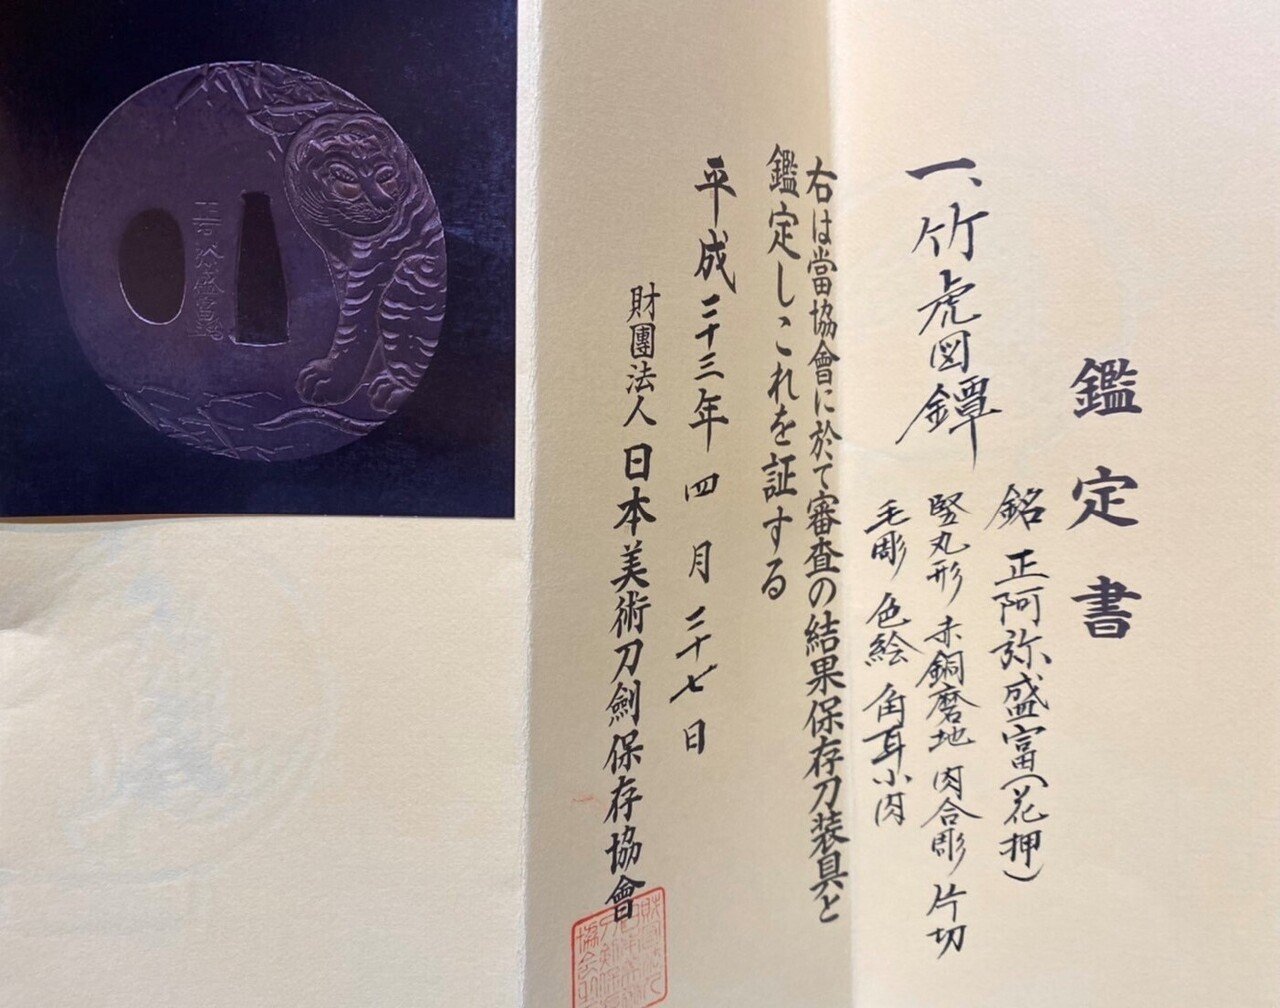 鑑定書
一、竹虎図鐔
銘 正阿弥盛富(花押)
竪丸形 赤銅磨地 肉合彫 片切
毛彫 色絵 角耳小肉
右は當協會に於て審査の結果保存刀装具と
鑑定しこれを証する
平成二十三年四月二十七日
財團法人日本美術刀劍保存協會